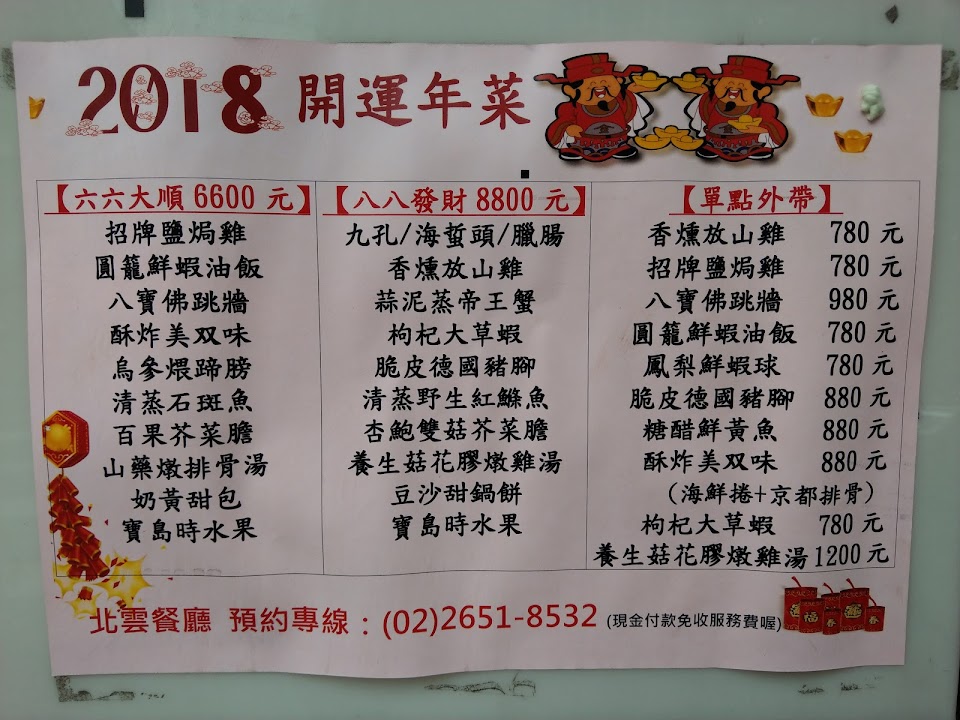 2018 開運年菜
【六六大順 6600 元】
招牌鹽焗雞
圓籠鮮蝦油飯
八寶佛跳牆
酥炸美双味
烏參煨蹄膀
清蒸石斑魚
百果芥菜膽
山藥燉排骨湯
奶黃甜包
寶島時水果
【八八發財 8800 元】
九孔/海蜇頭/臘腸
香燻放山雞
蒜泥蒸帝王蟹
枸杞大草蝦
脆皮德國豬腳
清蒸野生紅鰷魚
杏鮑雙菇芥菜膽
養生菇花膠燉雞湯
豆沙甜鍋餅
寶島時水果
【單點外帶】
香燻放山雞 780 元
招牌鹽焗雞 780 元
八寶佛跳牆 980 元
圓籠鮮蝦油飯 780 元
鳳梨鮮蝦球 780 元
脆皮德國豬腳 880 元
糖醋鮮黃魚 880 元
酥炸美双味 880 元
(海鮮捲+京都排骨)
枸杞大草蝦 780 元
養生菇花膠燉雞湯 1200 元
北雲餐廳 預約專線：(02)2651-8532 (現金付款免收服務費喔)